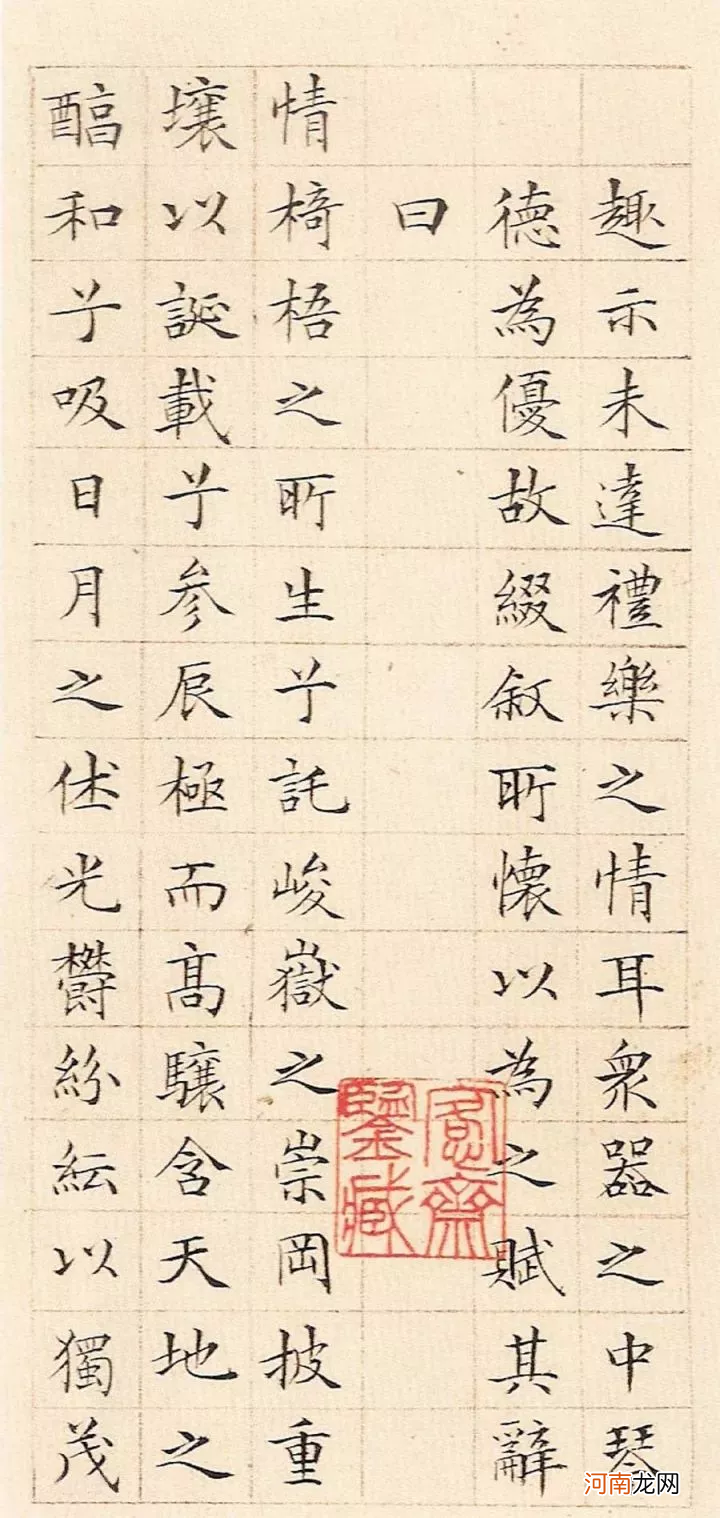 趣示未達禮樂之情耳衆器之中琴
德為優故綴叙所懷以為之賦其辭
曰
情椅梧之所生兮託峻嶽之崇岡披重
壤以誕載兮參辰極而高驤含天地之
醕和兮吸日月之休光鬱紛紜以獨茂
愙齋鑒藏
河南龙网